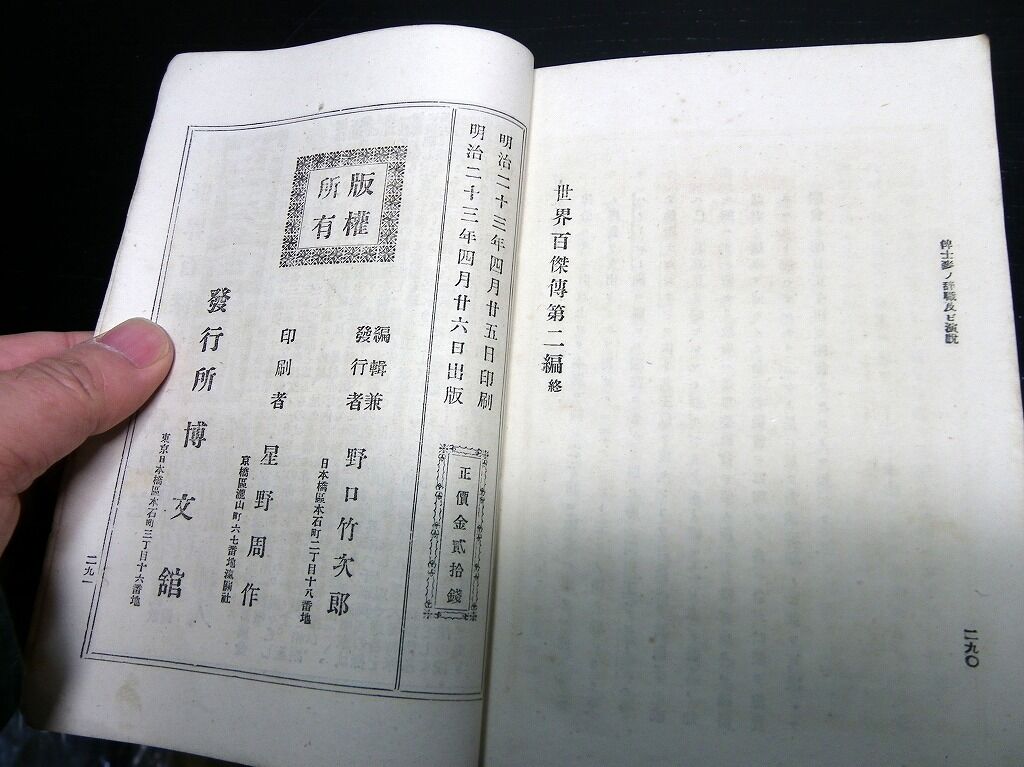 俾士麥ノ辭職及ビ演説
世界百傑傳第二編終
二九〇
明治二十三年四月廿五日印刷
明治二十三年四月廿六日出版
正價金貳拾錢
版權
所有
編輯兼
發行者
野口竹次郎
日本橋區本石町二丁目十八番地
印刷者
星野周作
京橋區瀧山町六七番地
發行所
博文舘
東京日本橋區本石町三丁目十六番地
二九一